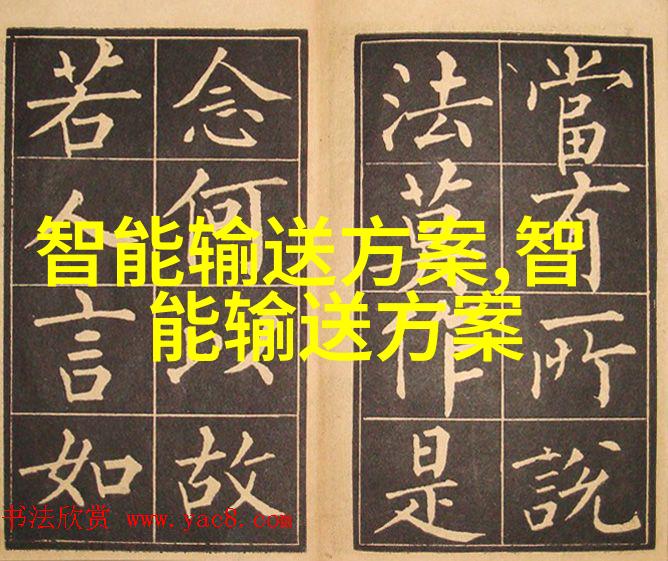 當有所說
法莫作是
念何以故
若人言如
智能输送方案,智
能输送方案
书法欣赏 www.yac8.com